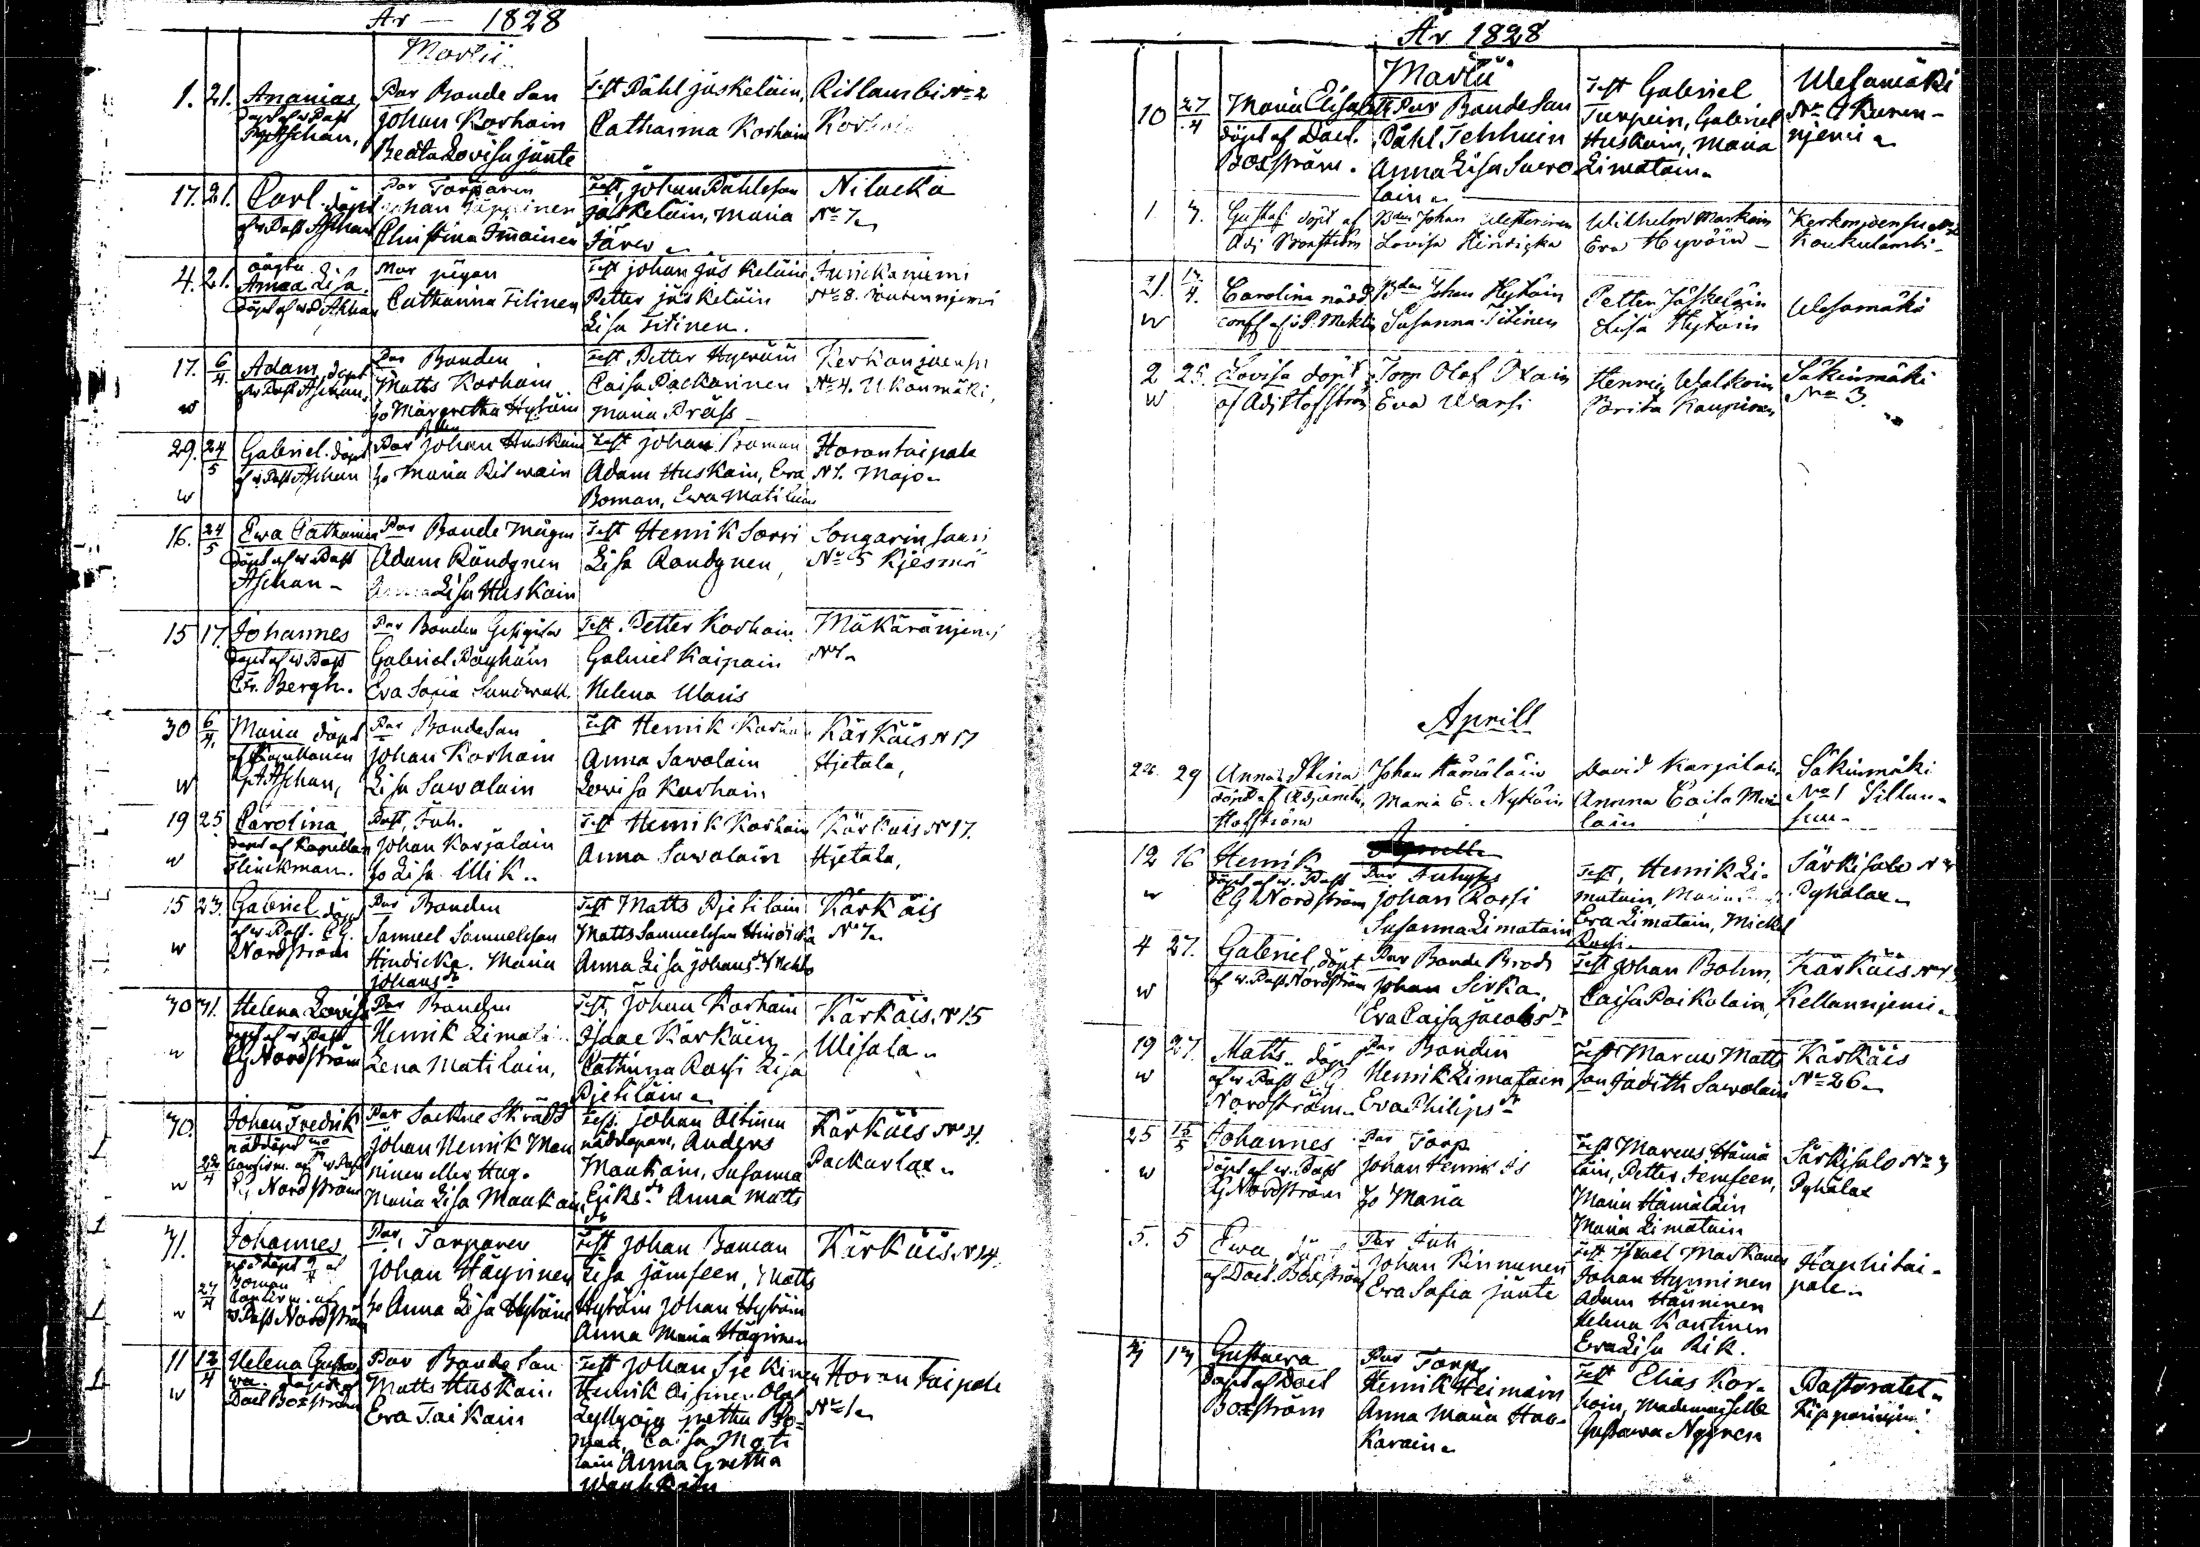 År — 1828
Martii
1. 21. Ananias
döpt af v Past
Aschan,
Par Bonde Son
Johan Korhoin
Beata Lovisa jänte
Test Påhl jäskeläin,
Catharina Korhoin
Ritlambi No 2
17. 21. Carl döpt
af v Past Aschan
Par Torparen
Christina Immainen
Test, Johan Påhlsson
jäskeläin, Maria
Järw
Nilacka
No 7
4. 21. oägta
Anna Lisa
döpt af v P Aschan
Mor pigan
Catharina Titinen
Test Johan jäskeläin
Petter jäskeläin
Lisa Titinen.
No 8.
17. 6/4. Adam döpt
af v Past Aschan
w
Par Bonden
Matts Korhoin
ho Margretha Hytöin
Test Petter Hyvöin
Caisa Packarinen
Maria Präss
Kerkonjoensu
No 4. Ukonmäki,
29. 24/5 Gabriel döpt
af v. Past Aschan
w
Par Johan Huskoin
ho Maria Ritwain
Test Johan Boman
Adam Huskoin, Eva
Boman, Ewa Matilain
Horontaipale
N 1. Majo
16. 24/5 Ewa Catharina
döpt af v Past
Aschan
Par Bonde Mågen
Adam Röndynen
Anna Lisa Huskoin
Test Henrik Sorri
Lisa Rondynen,
Songarinsaari
No 5 Kjesmä
15 17. Johannes
döpt af v Past
Fr. Bergh.
Par Bonden
Gabriel Pöyhöin
Eva Sofia Sundwall
Test. Petter Korhoin
Gabriel Kaipain
Helena Maris
Mäkäränjemi
30 6/4. Maria döpt
af Capellanen
Aschan,
w
Par Bonde Son
Johan Korhoin
Lisa Sawolain
Test Henrik
Anna Sawolain
Lovisa Korhoin
Kärkäis N 17
Hjetala,
19 25. Carolina
döpt af Kapellan
Flinckman.
w
Past, Inh.
Johan Karjalain
ho Lisa Mik..
Test Henrik Korhoin
Anna Sawolain
Kärkäis N 17.
Hjetala,
15 23. Gabriel döpt
af v Past. CG.
Nordström
w
Par Bonden
Samuel Samuelsson
Hindicka. Maria
Johansdr
Test Matts Pjetilain
Matts Samuelsson Hindicka
Anna Lisa Johansdr
Kärkäis
N 7
30 31. Helena Lovisa
döpt af v Past
CG Nordström
w
Par Bonden
Henrik Limat
Lena Matilain,
Test, Johan Korhoin
Isaac Kärkäin
Cathrina Rossi Lisa
Pjetiläin
Kärkäis. N 15
Wisala
30. Johan Fredrik
nöddöpt
confirm. af v Past
CG Nordström
22/4
w
Par Sockne Skrädd
Johan Henrik Man
ninen eller Hag.
Maria Lisa Maukoin
Test. Johan Oitinen
nöddopare, Anders
Maukoin, Susanna
Eriksdr Anna Matts
dr
Kärkäis No 4.
Packarlax
31. Johannes
nöddöpt af
Boman
Confirm. af
v Past Nordström
27/4
w
Par, Torparen
Johan Häyrinen
ho Anna Lisa Hytöin
Test Johan Boman
Lisa Jämseen, Matts
Hytöin Johan Hytöin
Anna Maria Häyrinen
Kärkäis. N 14.
11 13/4 Helena Gustava
döpt af
Doct Boxström
w
Par Bonde Son
Matts Huskoin
Eva Taikain
Test Johan
Henrik Oitinen Olof
Caisa Mati
lain Anna Gretha
Horontaipale
No 1
År 1828
Martii
10 27/4 Maria Elisabeth
döpt af Doct.
Boxström.
Par Bonde Son
Påhl Tehhuin
Anna Lisa Sawo
lain
Test Gabriel
Turpein, Gabriel
Huskoin, Maria
Limatain
Wesamäki
No 9 Kuren-
njemi
1. 7. Gustaf döpt af
Adj Boxström
Bden Johan Westerinen
Lovisa Hindicka
Wilhelm Markoin
Eva Hyvöin
Kerkonjoensu No
Koukulambi
21. 17/4. Carolina nödd
conf af v P. Meklin
w
Bden Johan Hytöin
Susanna Titinen
Petter Jäskeläin
Lisa Hytöin
Wesamäki
2 25. Lovisa döpt
af Adj Hofström
w
Torp Olof Oxain
Eva Warsi
Henric Walkoin
Brita Kaupinen
Säkinmäki
No 3.
Aprill
22. 29 Anna Stina
döpt af Adjuncten
Hofström
Johan Hämäläin
Maria E. Nykäin
David Karjalain
Anna Caisa Meri
läin
Säkinmäki
No 1 Sillan-
suu
12 16 Henrik
döpt af v. Past
CG Nordström
w
Par Inhyses
Johan Rossi
Susanna Limatain
Test, Henrik Li-
matain, Maria
Eva Limatain, Mickel
Rossi
Särkisalo N 3
Pyhälax
4 27. Gabriel, döpt
af v. Past Nordström
w
Par Bonde Brodr
Johan Sirka.
Eva Caisa Jacobsdr
Test Johan Bohm,
Caisa Poikolain,
Kärkäis N
Kellannjemi
19 27. Matts döpt
af v Past C.G.
Nordström
w
Par Bonden
Henrik Limatain
Eva Philipsdr
Test Marcus Matts
son Judith Sawolain
Kärkäis
No 26
25 15/5 Johannes
döpt af v. Past
CG Nordström
w
Par Torp
Johan Henrik
ho Maria
Test Marcus Hämä
läin, Petter Jemseen,
Maria Hämäläin
Maria Limatain
Särkisalo No 3
Pyhälax
5. 5 Ewa döpt
af Doct. Boxström
Par Inh
Johan Kinnunen
Eva Sofia jänte
Test Israel Maskonen
Johan Hynninen
Adam Hänninen
Helena Kontinen
Eva Lisa Rik.
Hanhitai-
pale
17 Gustaava
döpt af Doct
Boxström
Par Torp
Henrik Heimäin
Anna Maria Haa-
karain
Test Elias Kor-
hoin, Mademoiselle
Gustawa Nygren
Pastoratet